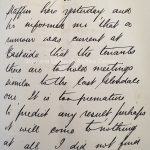 here yesterday and
he informed me that a
rumour was current at
Eastside that the tenants
there are to hold meetings
similar to the last
one. It is too premature
to predict any result perhaps
it will come to nothing
at all. I did not find